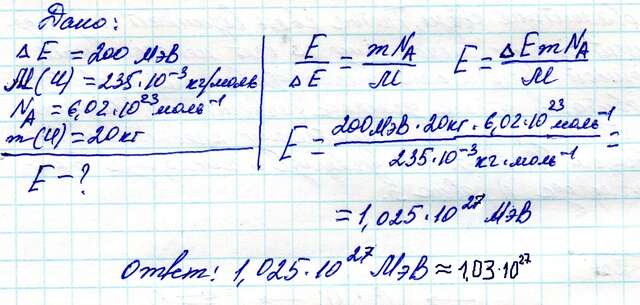 Дано:
ΔE = 200 МэВ
M(U) = 235·10⁻³ кг/моль
N_A = 6,02·10²³ моль⁻¹
m(U) = 20 кг
E – ?
E/ΔE = mN_A/M   E = ΔEmN_A/M
E = 200МэВ · 20кг · 6,02·10²³ моль⁻¹ / 235·10⁻³ кг·моль⁻¹ =
= 1,025·10²⁷ МэВ
Ответ: 1,025·10²⁷ МэВ ≈ 1,03·10²⁷